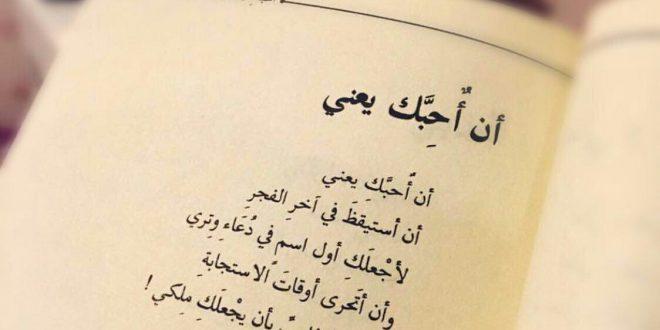 أن أُحِبَّك يعني
أن أُحبَّكِ يعني
أن أستيقظَ في آخرِ الفجرِ
لأجْعلَكِ أول اسم في دُعَاءِ وِتري
وأن أتَحرى أوقاتَ الاستجابةِ
بأن يجْعلَكِ مِلكي!